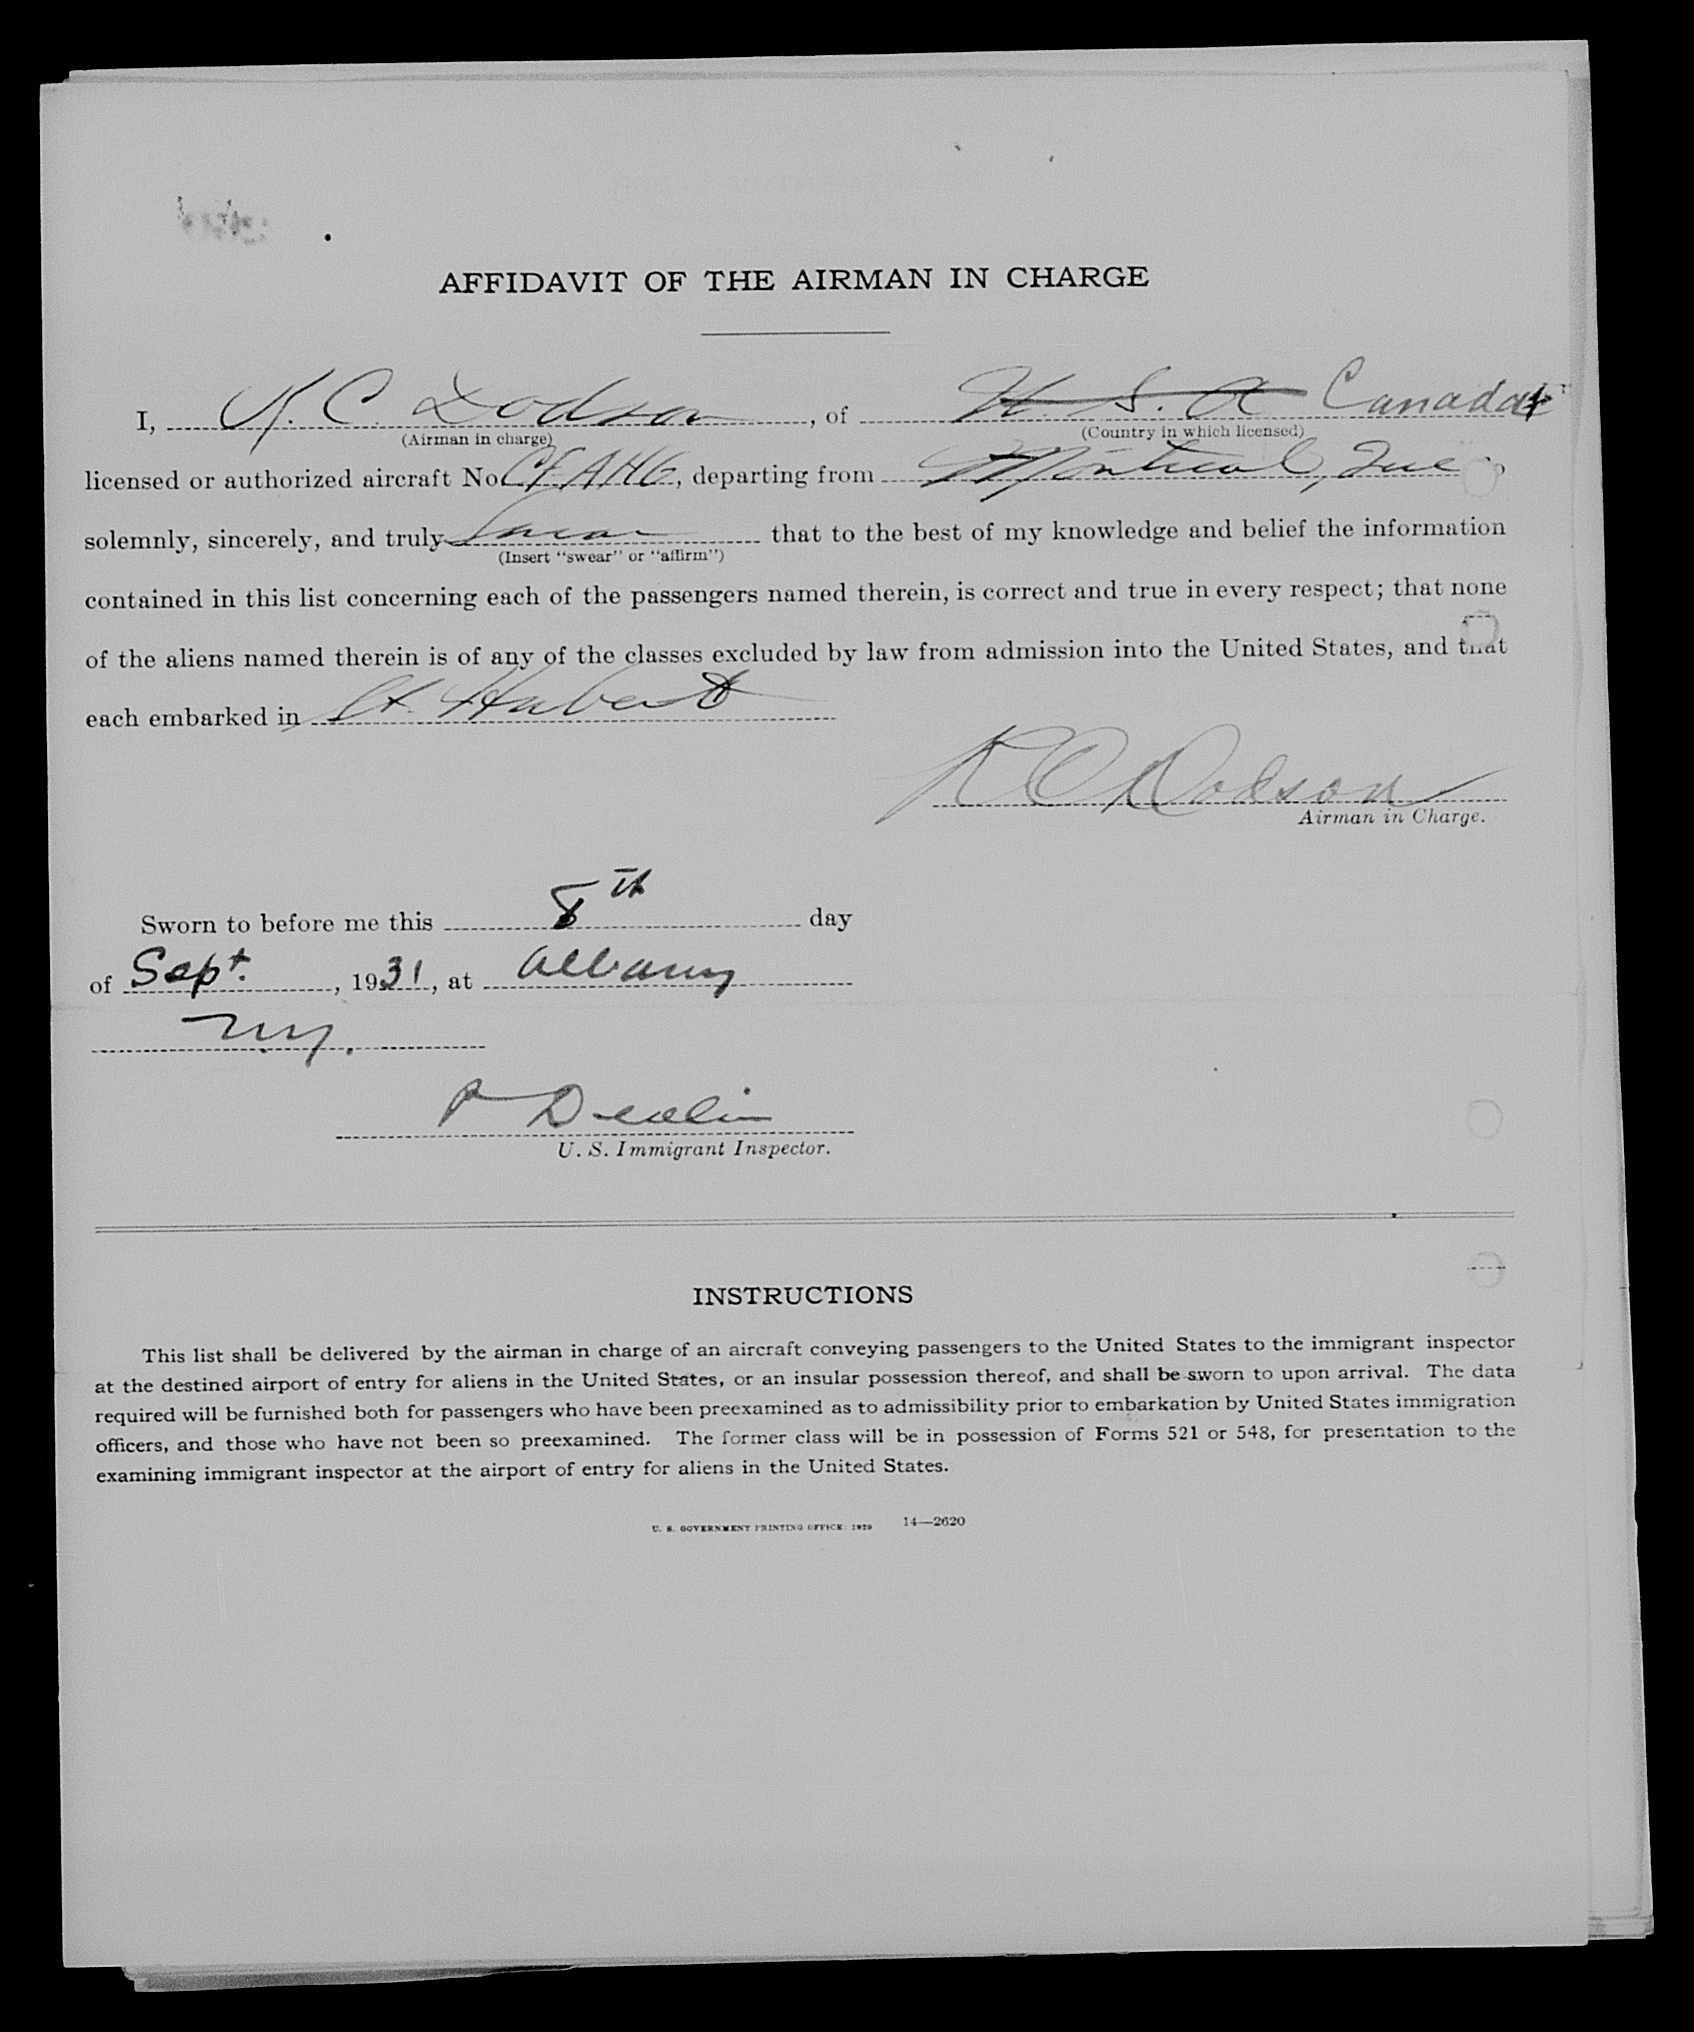 AFFIDAVIT OF THE AIRMAN IN CHARGE
I, K. C. Dodson, of U. S. A Canada
(Airman in charge) (Country in which licensed)
licensed or authorized aircraft No. CF AHG, departing from Montreal, Que,
solemnly, sincerely, and truly swear that to the best of my knowledge and belief the information
(Insert "swear" or "affirm")
contained in this list concerning each of the passengers named therein, is correct and true in every respect; that none
of the aliens named therein is of any of the classes excluded by law from admission into the United States, and that
each embarked in St. Hubert
K C Dodson
Airman in Charge.
Sworn to before me this 8th day
of Sept., 1931, at Albany
N.Y.
Devlin
U. S. Immigrant Inspector.
INSTRUCTIONS
This list shall be delivered by the airman in charge of an aircraft conveying passengers to the United States to the immigrant inspector
at the destined airport of entry for aliens in the United States, or an insular possession thereof, and shall be sworn to upon arrival. The data
required will be furnished both for passengers who have been preexamined as to admissibility prior to embarkation by United States immigration
officers, and those who have not been so preexamined. The former class will be in possession of Forms 521 or 548, for presentation to the
examining immigrant inspector at the airport of entry for aliens in the United States.
U. S. GOVERNMENT PRINTING OFFICE: 1929 14—2620